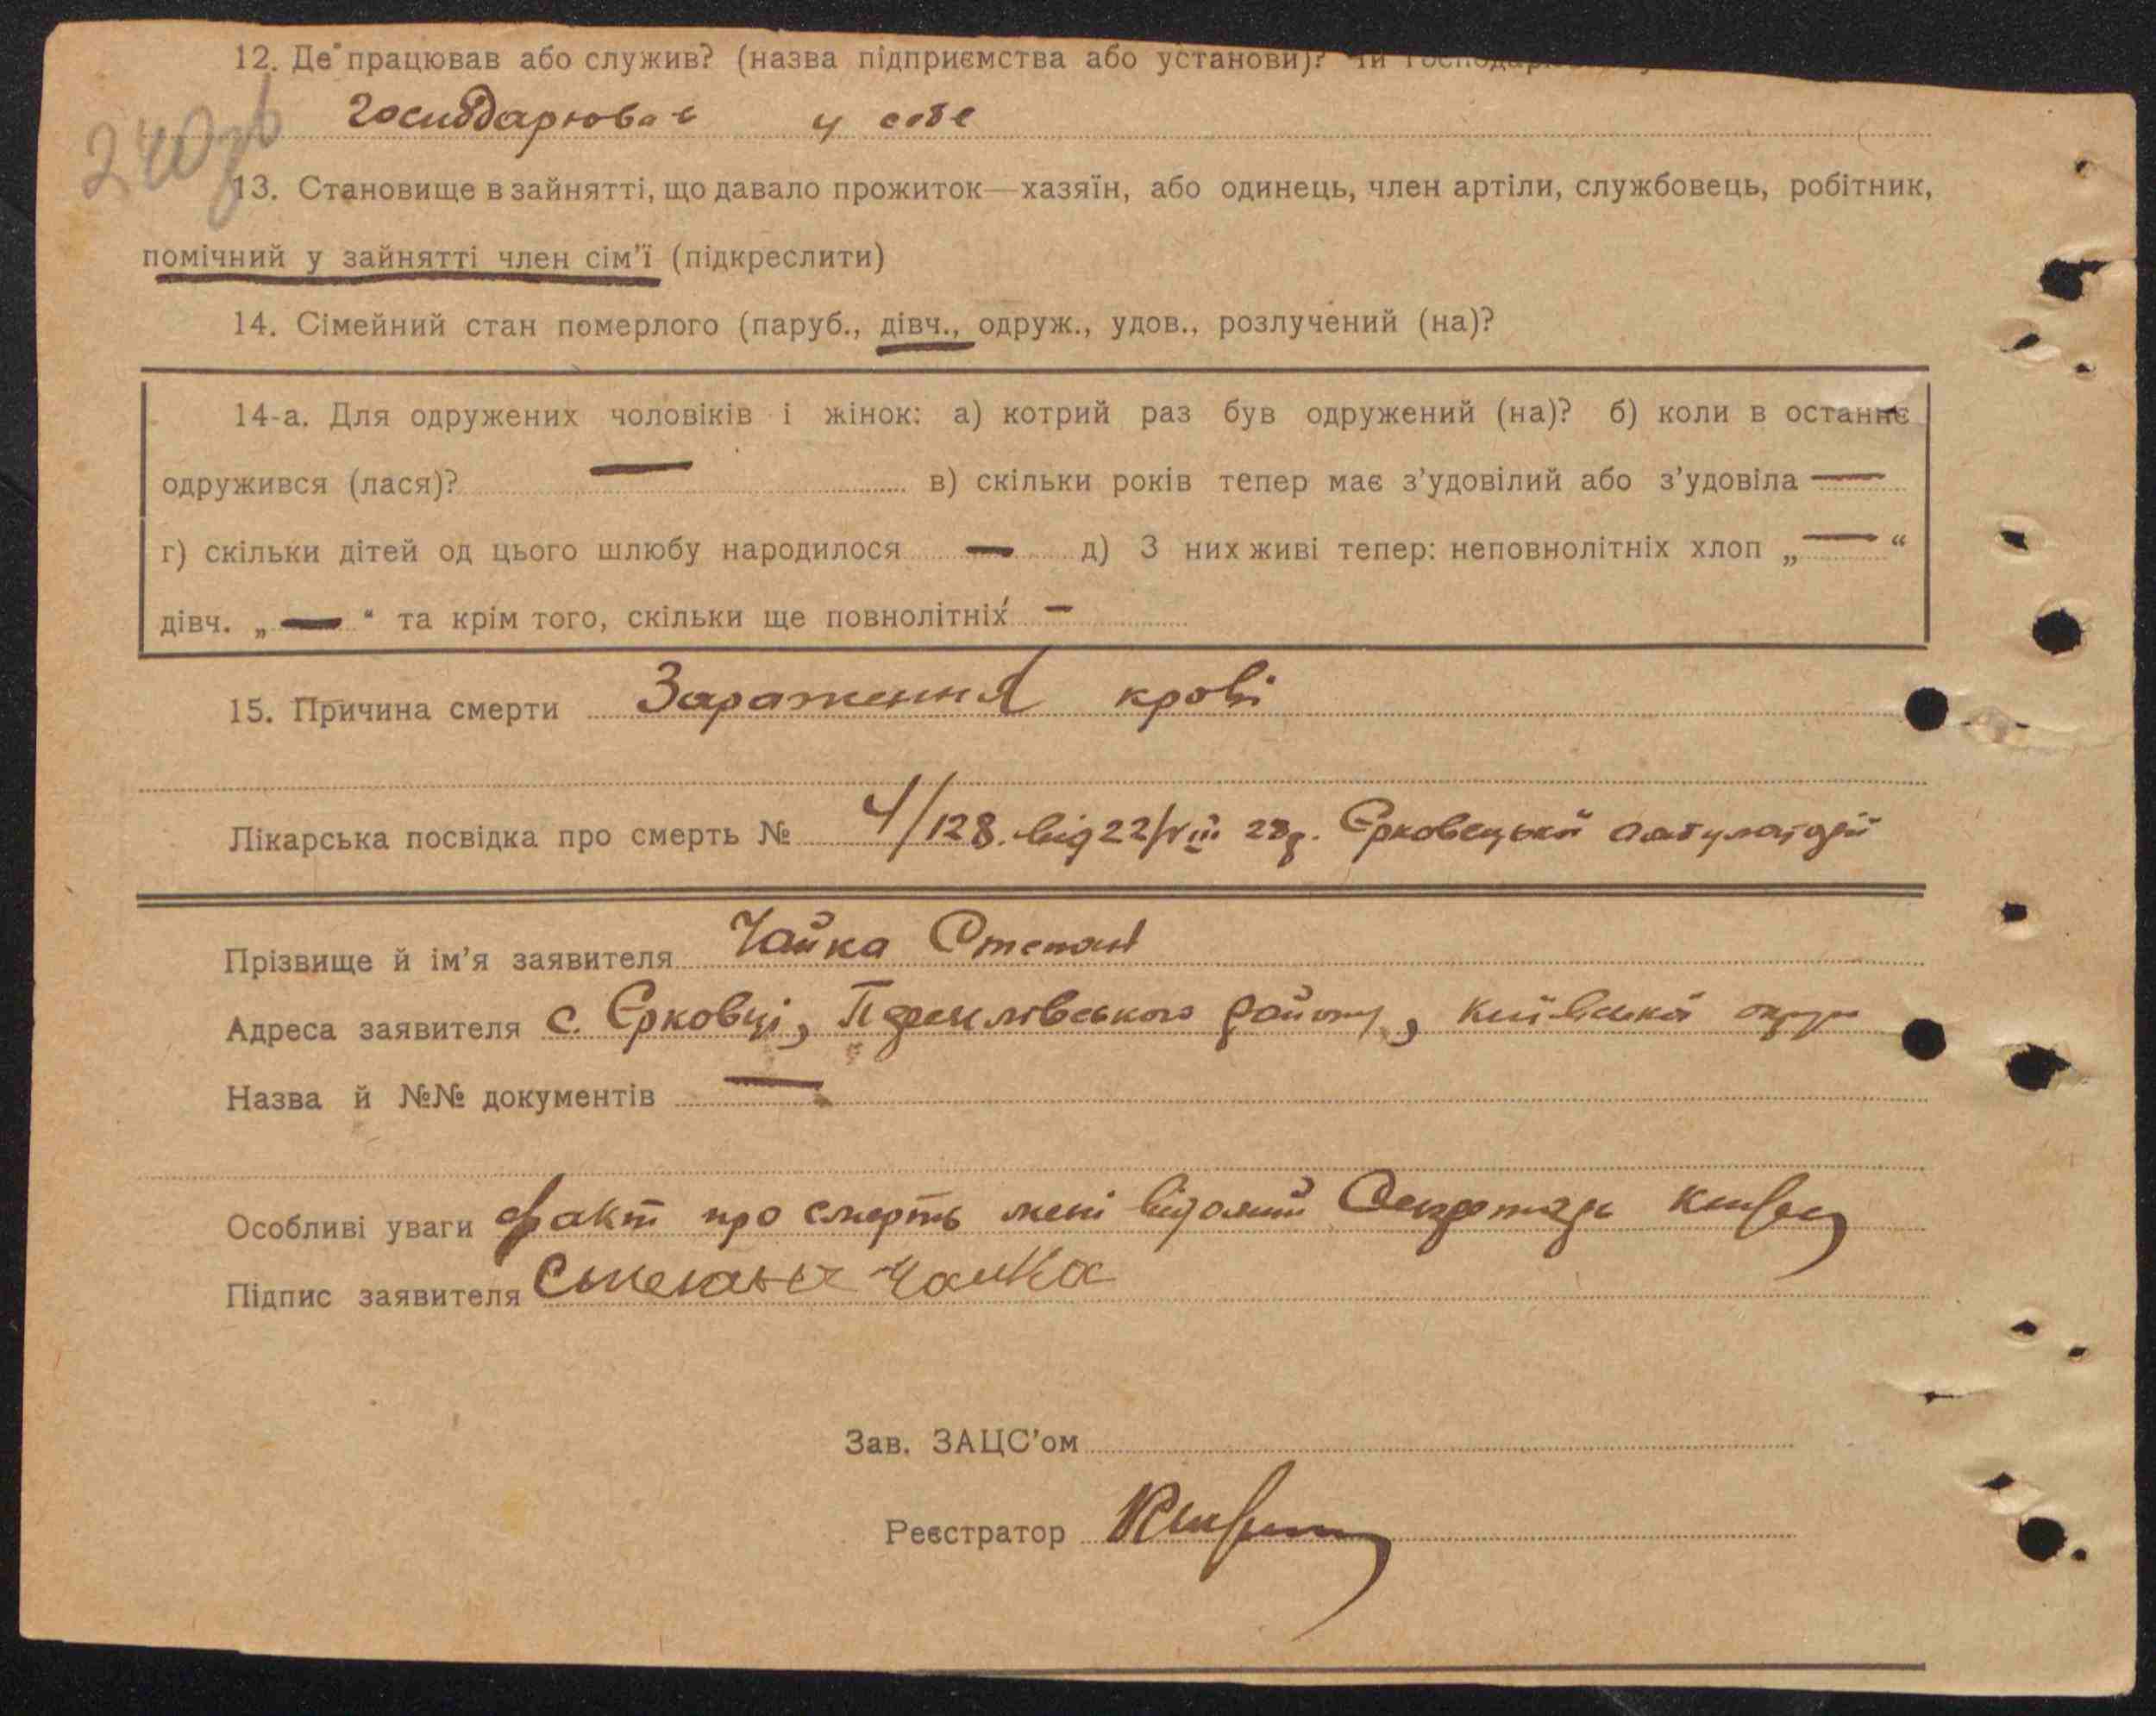 12. Де працював або служив? (назва підприємства або установи)? Чи
господарював у себе
240зв
13. Становище в зайнятті, що давало прожиток—хазяїн, або одинець, член артіли, службовець, робітник,
помічний у зайнятті член сім'ї (підкреслити)
14. Сімейний стан померлого (паруб., дівч., одруж., удов., розлучений (на)?
14-а. Для одружених чоловіків і жінок: а) котрий раз був одружений (на)? б) коли в останнє
одружився (лася)? — в) скільки років тепер має з'удовілий або з'удовіла —
г) скільки дітей од цього шлюбу народилося — д) З них живі тепер: неповнолітніх хлоп „—“
дівч. „—“ та крім того, скільки ще повнолітніх —
15. Причина смерти Зараження крові
Лікарська посвідка про смерть № 4/128. від 22/VIII 28р. Єрковецької амбулаторії
Прізвище й ім'я заявителя Чайка Степан
Адреса заявителя с. Єрковці, Переяслівського району, Київської округи
Назва й №№ документів —
Особливі уваги факт про смерть мені відомий Секретарь
Підпис заявителя Степан Чайка
Зав. ЗАЦС'ом
Реєстратор